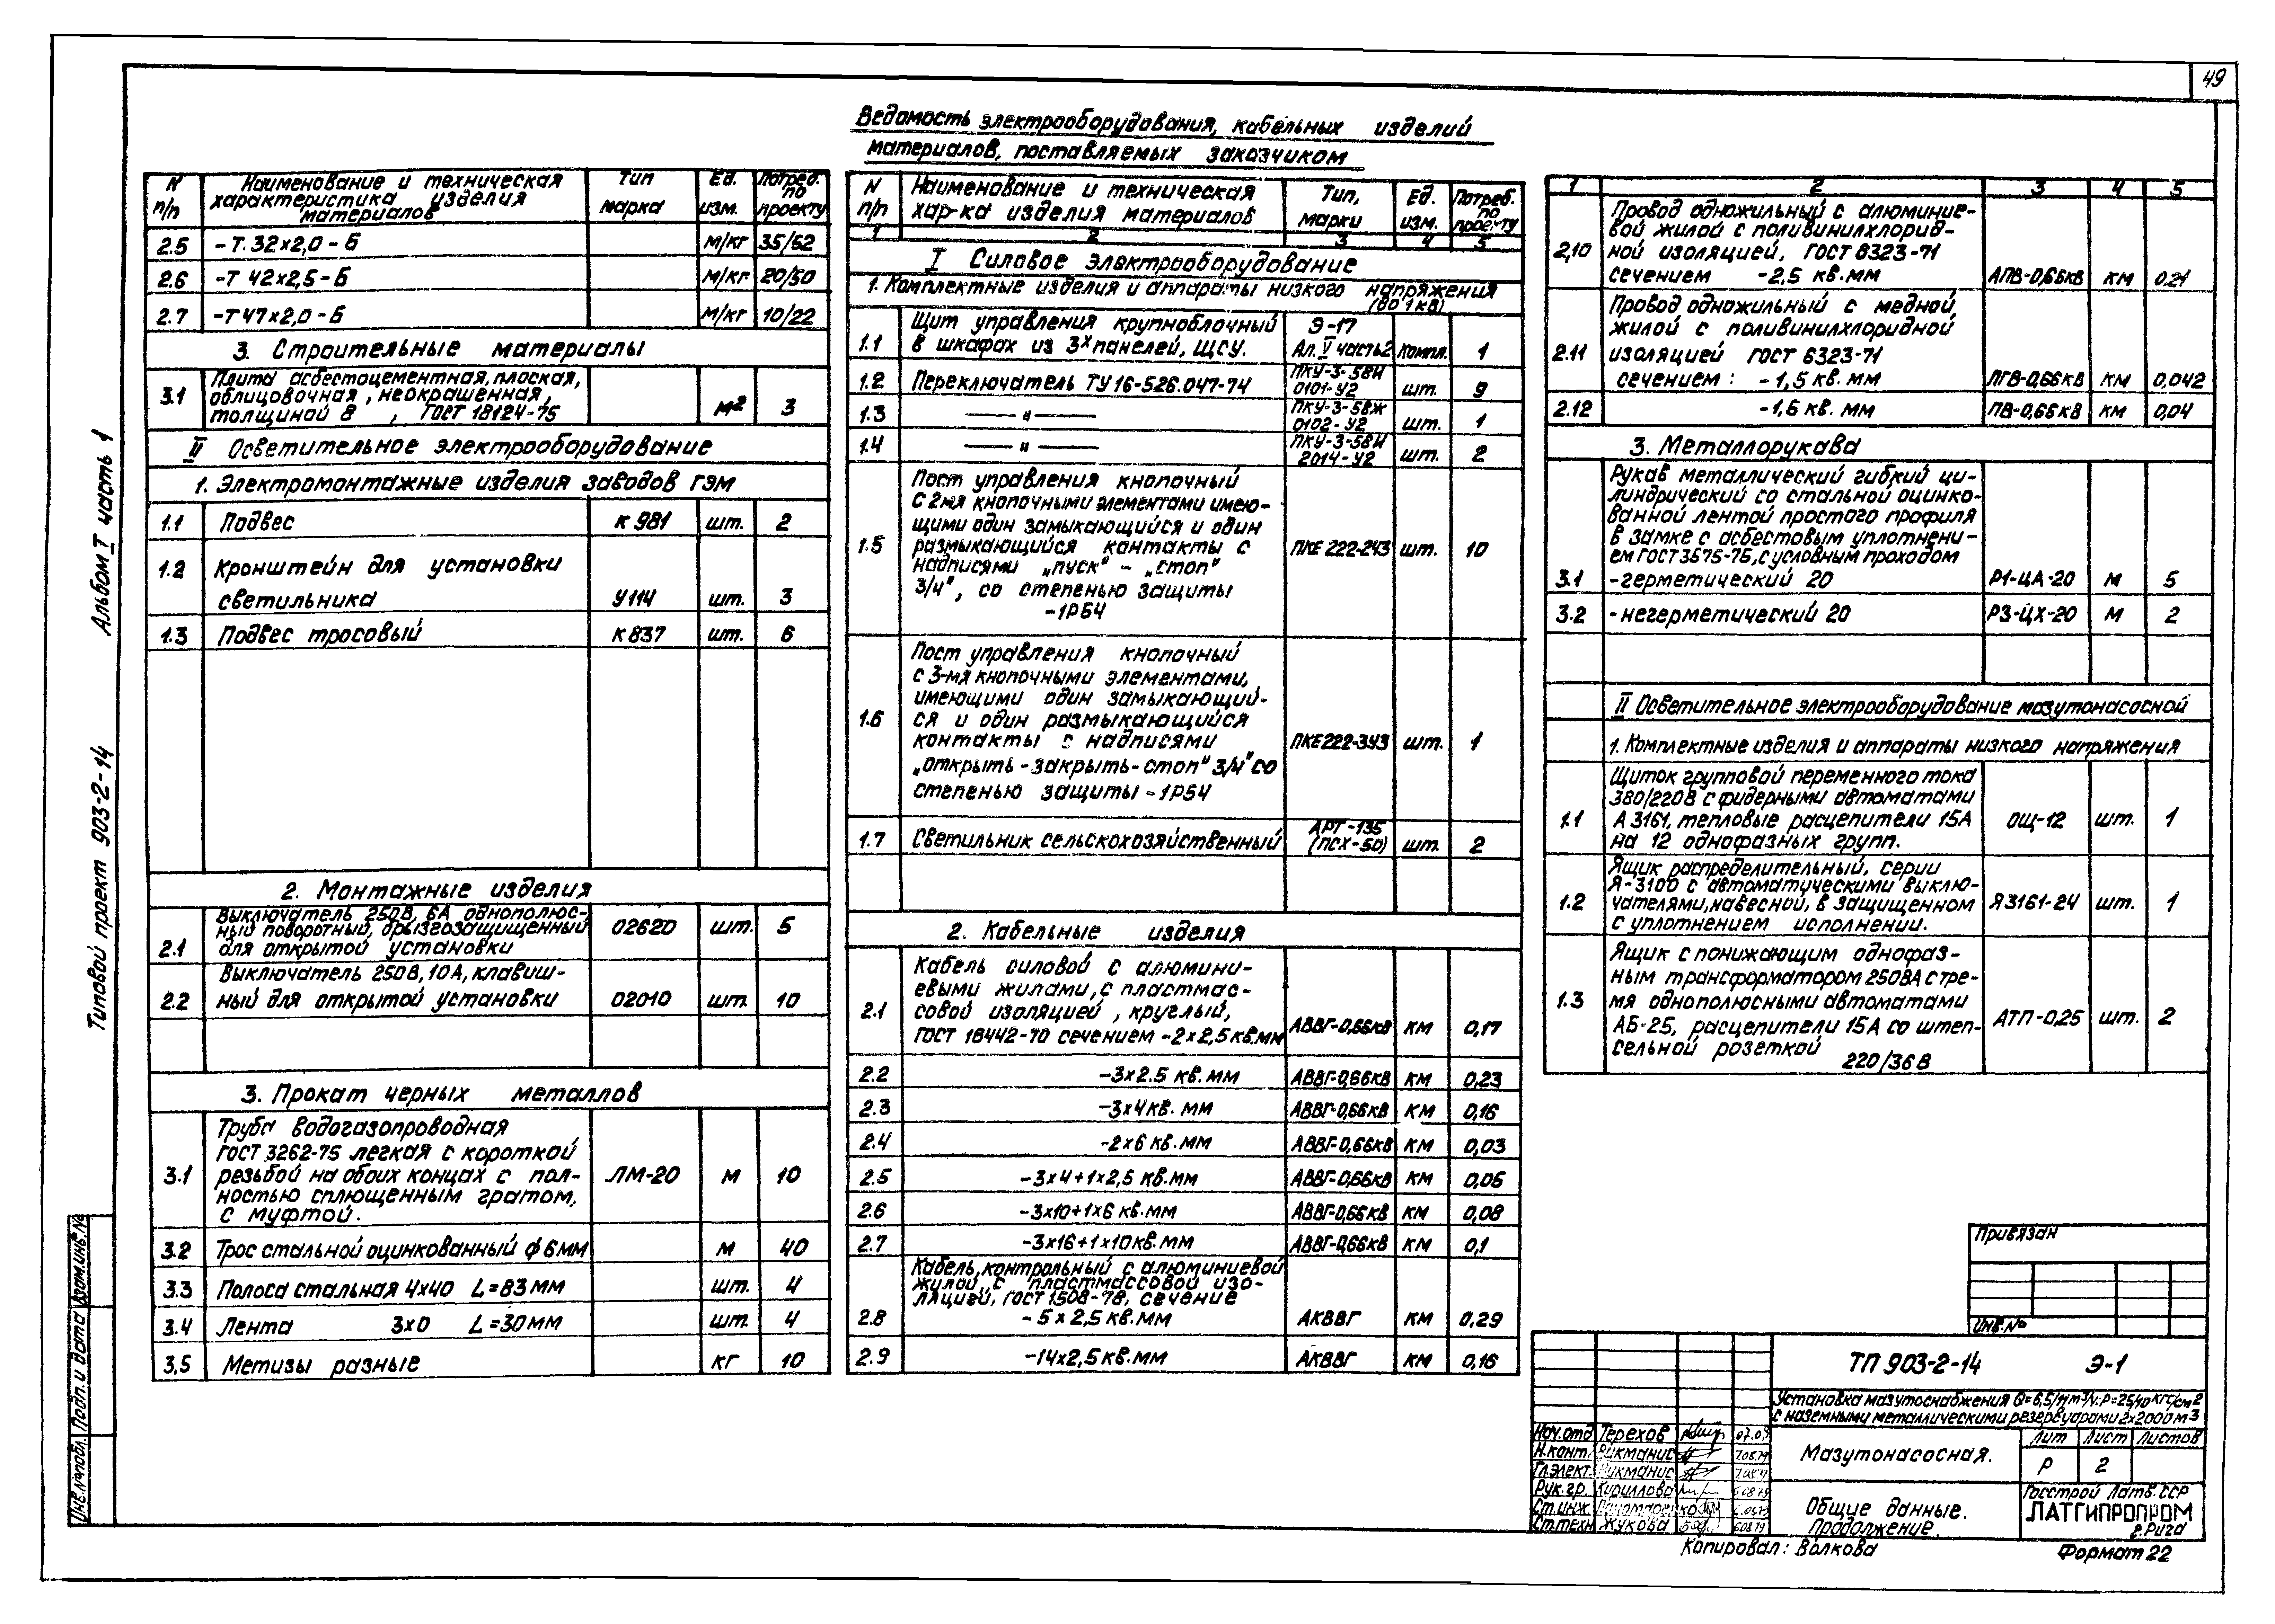 49
Ведомость электрооборудования, кабельных изделий
материалов, поставляемых заказчиком
N п/п | Наименование и техническая характеристика изделия материалов | Тип марка | Ед. изм. | Потреб. по проекту
2.5 | -Т. 32×2,0-Б | | м/кг | 35/52
2.6 | -Т 42×2,5-Б | | м/кг | 20/50
2.7 | -Т47×2,0-Б | | м/кг | 10/22
3. Строительные материалы
Плита асбестоцементная, плоская,
облицовочная, неокрашенная,
3.1 | толщиной 8 , ГОСТ 18124-75 | | м² | 3
II Осветительное электрооборудование
1. Электромонтажные изделия заводов ГЭМ
1.1 | Подвес | К 981 | шт. | 2
1.2 | Кронштейн для установки
светильника | У114 | шт. | 3
1.3 | Подвес тросовый | К837 | шт. | 6
2. Монтажные изделия
Выключатель 250В, 6А однополюс-
ный поворотный, брызгозащищенный | 02620 | шт. | 5
2.1 | для открытой установки
Выключатель 250В, 10А, клавиш-
2.2 | ный для открытой установки | 02010 | шт. | 10
3. Прокат черных металлов
Труба водогазопроводная
ГОСТ 3262-75 легкая с короткой
3.1 | резьбой на обоих концах с пол- | ЛМ-20 | м | 10
ностью сплющенным гратом,
с муфтой.
3.2 | Трос стальной оцинкованный ф6мм | | м | 40
3.3 | Полоса стальная 4×40 L=83мм | | шт. | 4
3.4 | Лента 3×0 L=30мм | | шт. | 4
3.5 | Метизы разные | | кг | 10
N п/п | Наименование и техническая хар-ка изделия материалов | Тип, марки | Ед. изм. | Потреб. по проекту
1 | 2 | 3 | 4 | 5
I Силовое электрооборудование
1. Комплектные изделия и аппараты низкого напряжения
(до 1кв)
Щит управления крупноблочный | Э-17
1.1 | в шкафах из 3х панелей, ЩСУ. | Ал. V часть2 | Компл. | 1
1.2 | Переключатель ТУ16-526.047-74 | ПКУ-3-58И 0101-У2 | шт. | 9
1.3 | — " — | ПКУ-3-58Ж 0102-У2 | шт. | 1
1.4 | — " — | ПКУ-3-58И 2014-У2 | шт. | 2
Пост управления кнопочный
с 2мя кнопочными элементами имею-
щими один замыкающийся и один
1.5 | размыкающийся контакты с | ПКЕ 222-2У3 | шт. | 10
надписями „пуск" - „стоп"
3/4", со степенью защиты
-1Р54
Пост управления кнопочный
с 3-мя кнопочными элементами,
имеющими один замыкающий-
1.6 | ся и один размыкающийся
контакты с надписями | ПКЕ222-3У3 | шт. | 1
„открыть-закрыть-стоп" 3/4" со
степенью защиты-1Р54
1.7 | Светильник сельскохозяйственный | АРТ-135 (ПСХ-50) | шт. | 2
2. Кабельные изделия
Кабель силовой с алюмини-
евыми жилами, с пластмас-
2.1 | совой изоляцией, круглый,
ГОСТ 16442-70 сечением -2×2,5кв.мм | АВВГ-0,66кв | км | 0,17
2.2 | -3×2.5 кв.мм | АВВГ-0,66кв | км | 0,23
2.3 | -3×4кв.мм | АВВГ-0,66кв | км | 0,16
2.4 | -2×6 кв.мм | АВВГ-0,66кв | км | 0,03
2.5 | -3×4+1×2,5 кв.мм | АВВГ-0,66кв | км | 0,05
2.6 | -3×10+1×6 кв.мм | АВВГ-0,66кв | км | 0,08
2.7 | -3×16+1×10кв.мм | АВВГ-0,66кв | км | 0,1
Кабель, контрольный с алюминиевой
жилой, с пластмассовой изо-
ляцией, ГОСТ 1508-78, сечение
2.8 | -5×2,5кв.мм | АКВВГ | км | 0,29
2.9 | -14×2,5кв.мм | АКВВГ | км | 0,16
1 | 2 | 3 | 4 | 5
Провод одножильный с алюминие-
вой жилой с поливинилхлорид-
2,10 | ной изоляцией, ГОСТ 6323-71
сечением -2,5 кв.мм | АПВ-0,66кв | км | 0.21
Провод одножильный с медной,
жилой с поливинилхлоридной
2.11 | изоляцией ГОСТ 6323-71
сечением: -1,5 кв.мм | ПГВ-0,66кв | км | 0,042
2.12 | -1,5 кв.мм | ПВ-0,66кв | км | 0,04
3. Металлорукава
Рукав металлический гибкий ци-
линдрический со стальной оцинко-
ванной лентой простого профиля
в замке с асбестовым уплотнени-
ем ГОСТ 3575-75, с условным проходом
3.1 | -герметический 20 | Р1-ЦА-20 | м | 5
3.2 | -негерметический 20 | Р3-ЦХ-20 | м | 2
II Осветительное электрооборудование мазутонасосной
1. Комплектные изделия и аппараты низкого напряжения
Щиток групповой переменного тока
380/220В с фидерными автоматами
1.1 | А 3161, тепловые расцепители 15А | ОЩ-12 | шт. | 1
на 12 однофазных групп.
Ящик распределительный, серии
Я-3100 с автоматическими выклю-
1.2 | чателями, навесной, в защищенном | Я3161-24 | шт. | 1
с уплотнением исполнении.
Ящик с понижающим однофаз-
ным трансформатором 250ВА с тре-
1.3 | мя однополюсными автоматами
АБ-25, расцепители 15А со штеп- | АТП-0,25 | шт. | 2
сельной розеткой
220/36В
Привязан
Инв.№
ТП 903-2-14 Э-1
Установка мазутоснабжения Q=6,5/11м³/ч. р=25/10кгс/см²
с наземными металлическими резервуарами 2×2000м³
Нач.отд Терехов
Н.конт. Рикманис
Гл.элект. Рикманис
Рук.гр. Кириллова
Ст.инж.
Ст.техн Жукова
Мазутонасосная.
Лит Лист Листов
Р 2
Общие данные.
Продолжение.
Госстрой Латв.ССР
ЛАТГИПРОПРОМ
г.Рига
Копировал: Волкова
Формат 22
Типовой проект 903-2-14 Альбом I часть 1
Инв.№подл. Подп. и дата Взам.инв.№